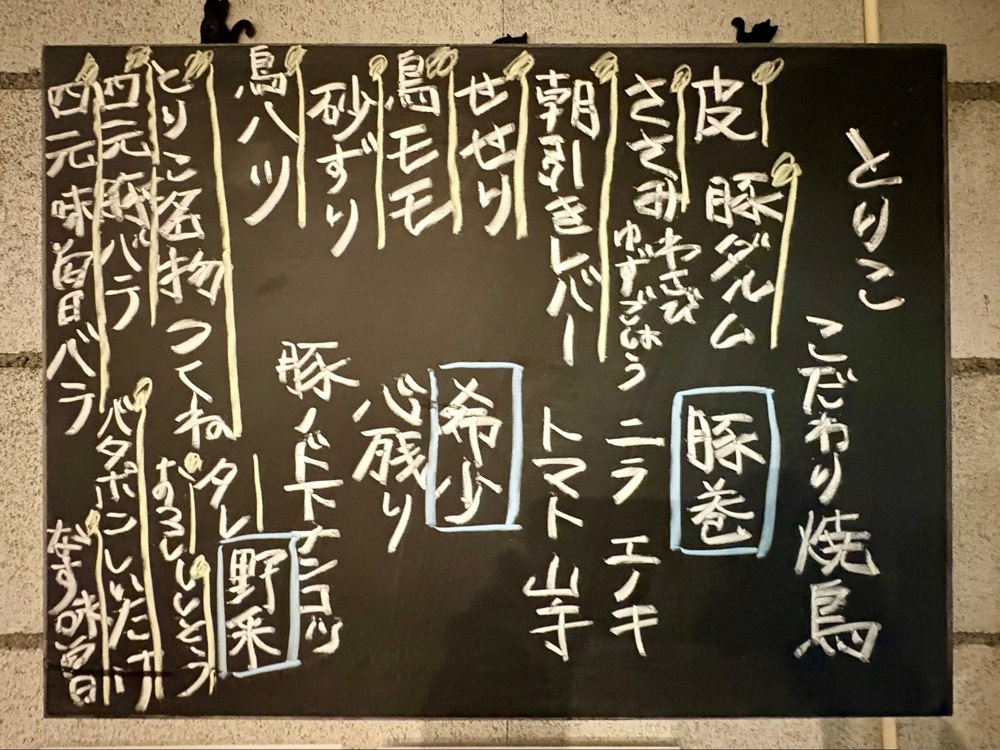 とりこ
こだわり焼鳥
皮
豚ダルム
ささみ わさび
ゆずごしょう
朝引きレバー
せせり
鳥モモ
砂ずり
鳥ハツ
とりこ名物 つくね タレ
四元豚バラ
四元味噌バラ
豚巻
ニラ エノキ
トマト 山芋
希少
心残り
豚ノド下ナンコツ
野菜
おろしししとう
バタポンしいたけ
なす味噌